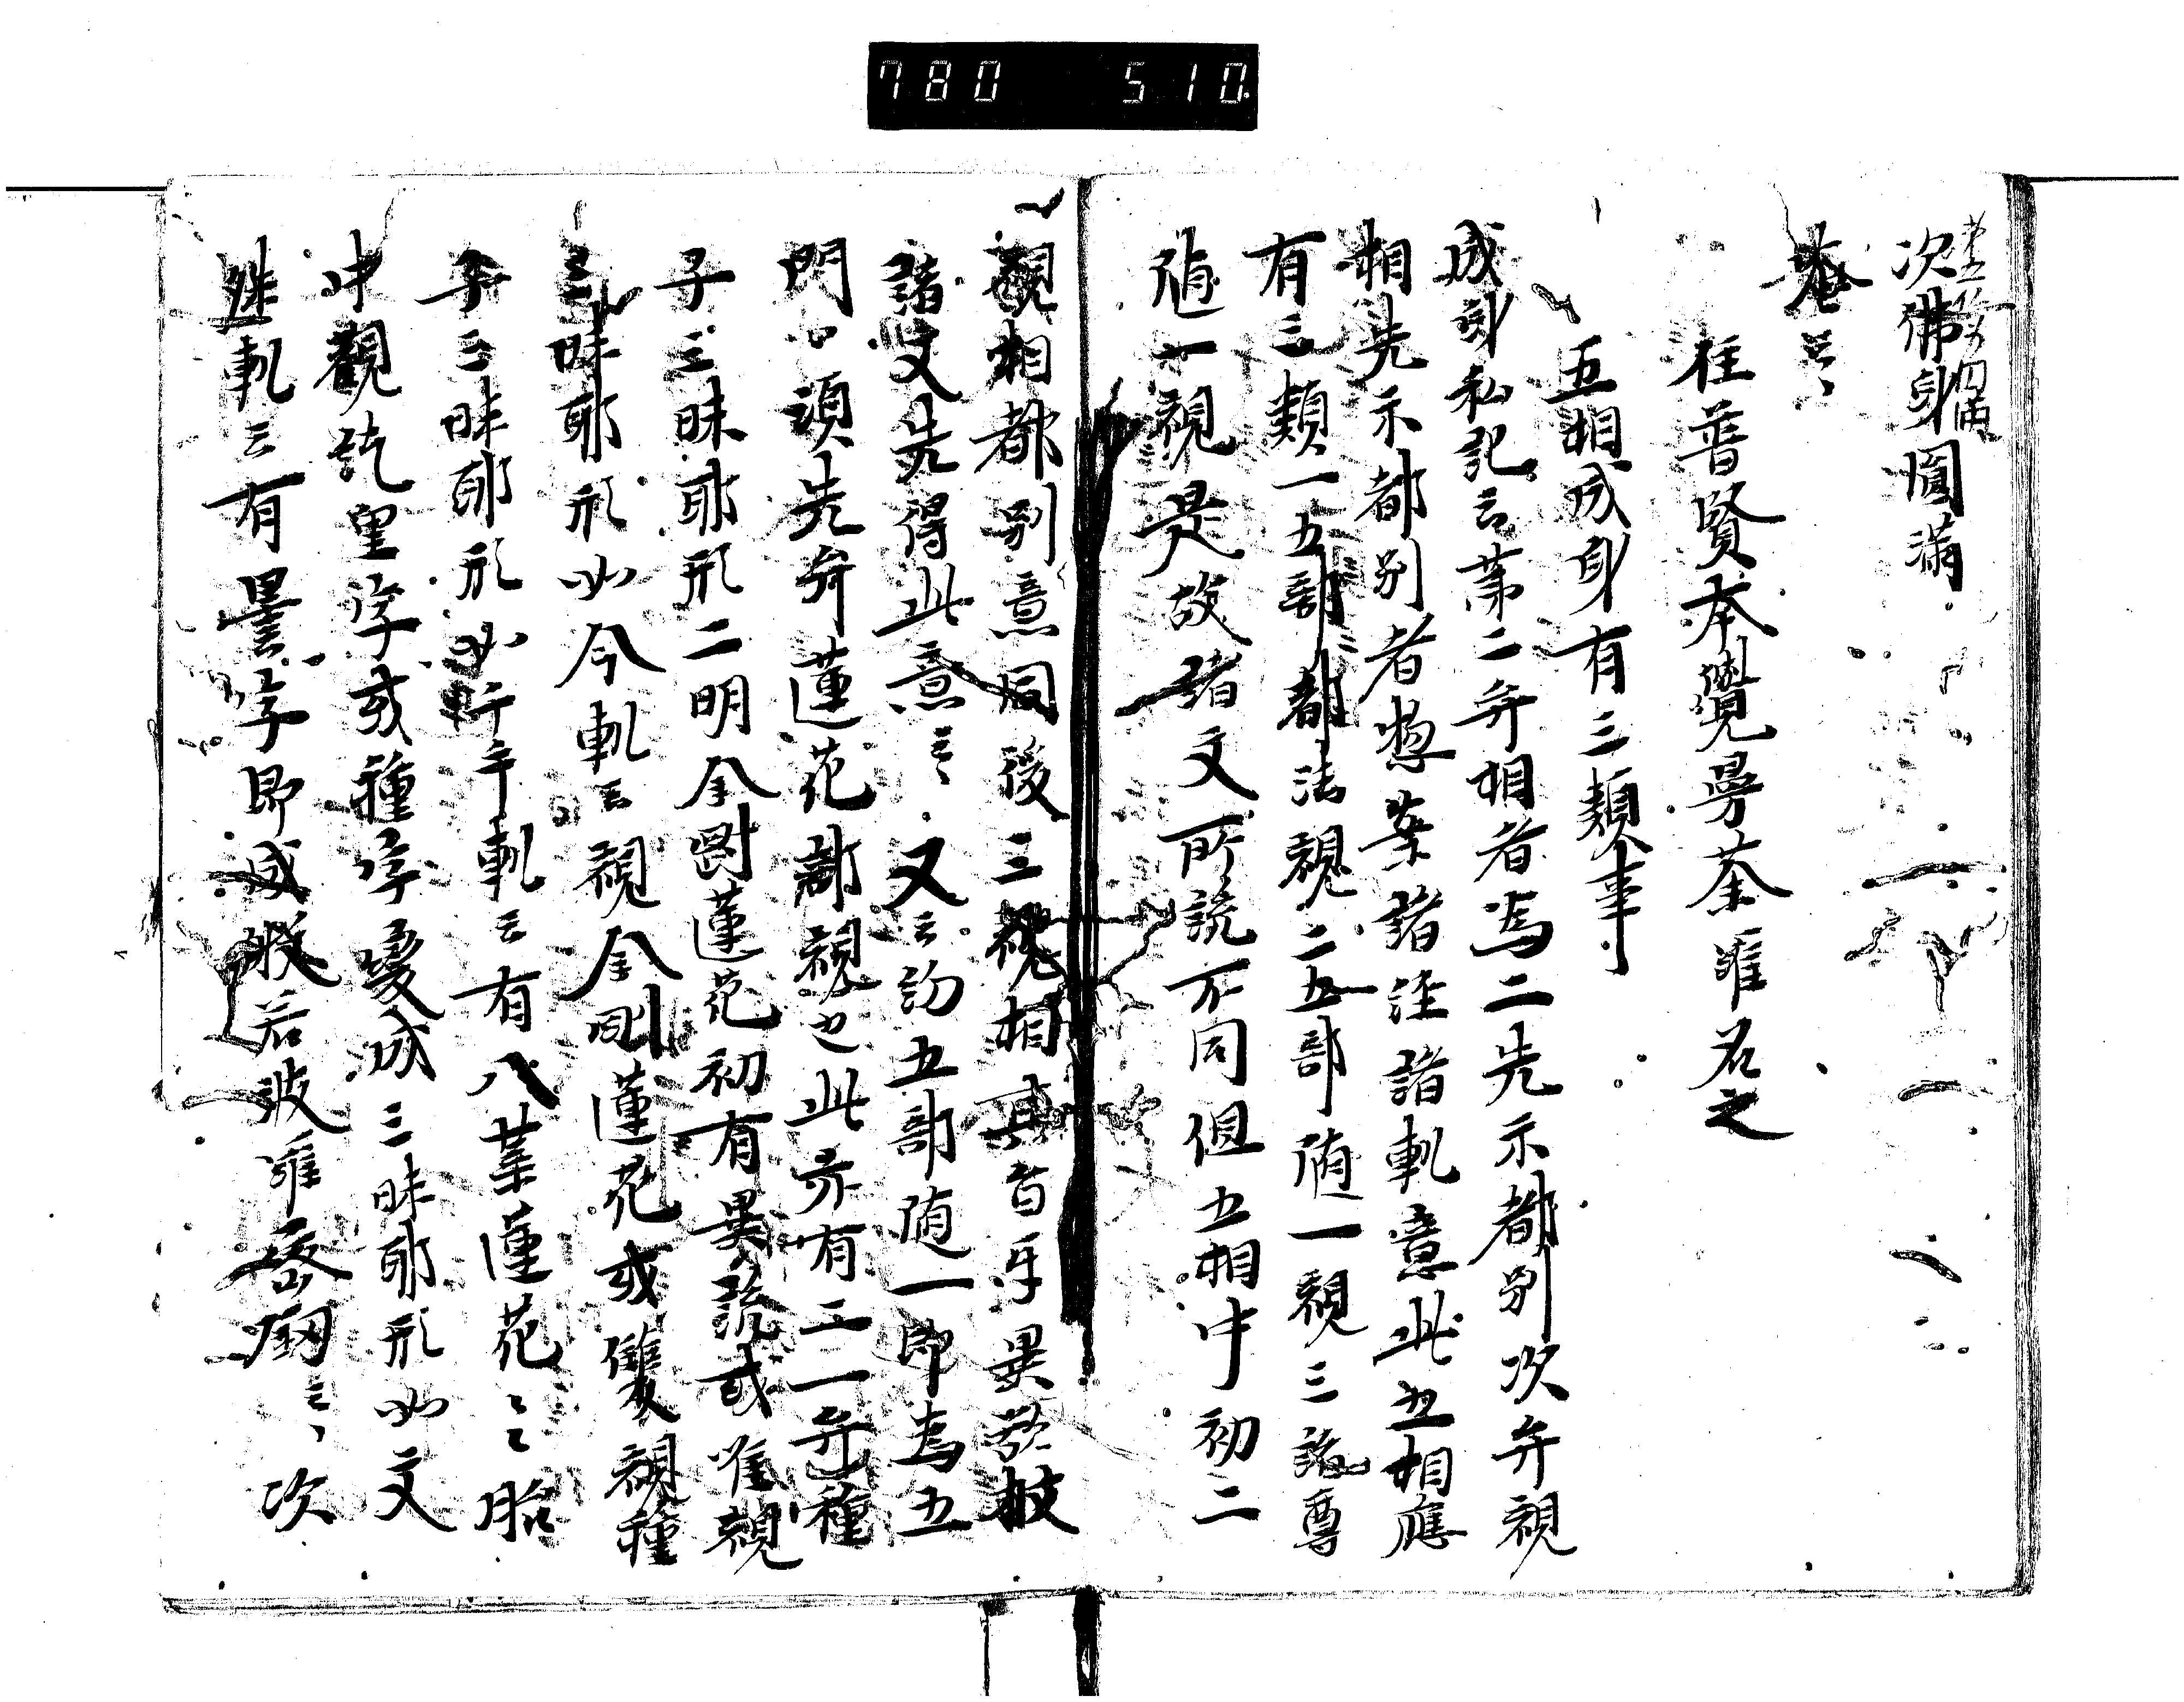 780 510
次佛身圓滿
唵云々
在普賢本覺曼荼唯名之
五相成身有三類事
成身私記云第二弁相者為二先示都別次弁観
相先示都別者惣案諸経諸軌意此五相應
有三類一五部都法観二五部随一観三諸尊
随一観是故諸文所説不同但五相中初二
観相都別意同後三観相其旨乎異𫝆披
諸文先得此意云々又云初五部随一即為五
門如須先弁蓮花部観也此亦有二一弁種
子三昧耶形二明金剛蓮花初有異説或唯観
三昧耶形如今軌云観金剛蓮花或雙観種
子三昧耶形如軌云有八葉蓮花云々胎
中觀紇里字或種字變成三昧耶形如文
殊軌云有曇字即成般若波唯慈劔云々次